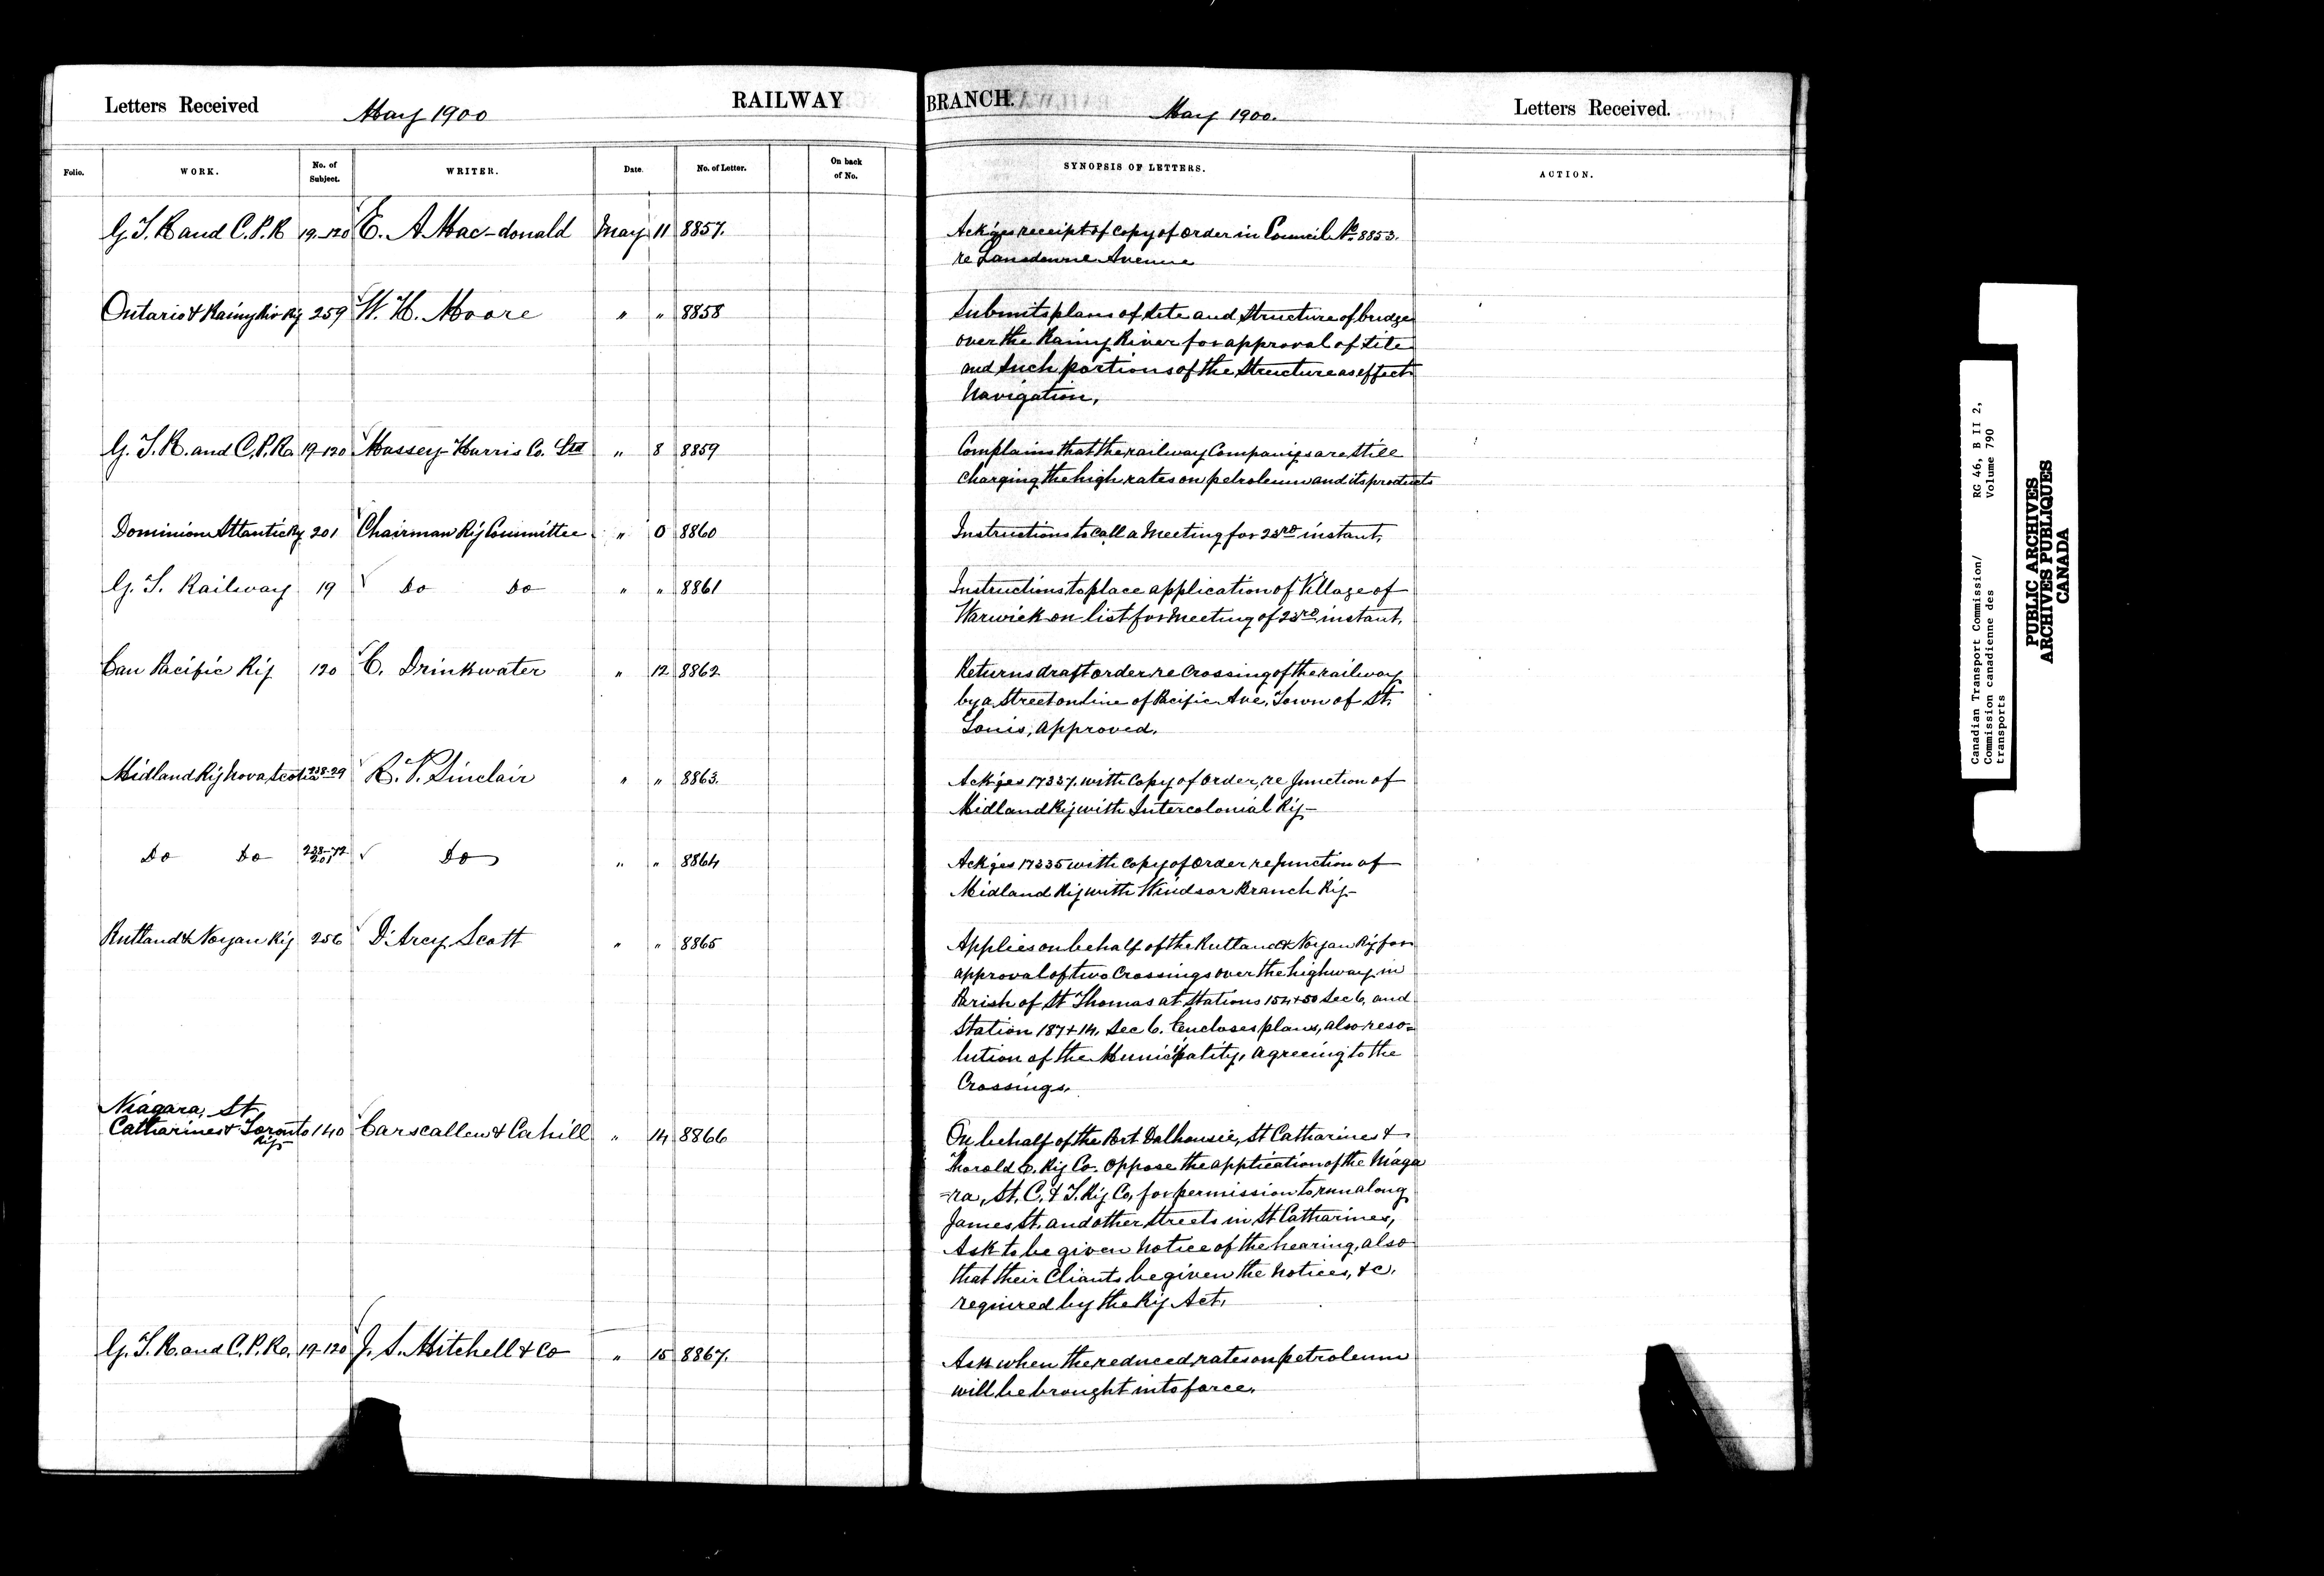 Letters Received
May 1900
RAILWAY
BRANCH.
May 1900.
Letters Received.
Folio. WORK. No. of Subject. WRITER. Date. No. of Letter. On back of No. SYNOPSIS OF LETTERS. ACTION.
G.T.R and C.P.R 19-120 E. A Mac-donald May 11 8857. Ackges receipt of copy of order in Council No. 8853.
re Lansdowne Avenue
Ontario & Rainy Riv Ry 259 W. H. Moore " " 8858 Submits plans of site and structure of bridge
over the Rainy River for approval of site
and such portions of the structure as effect
Navigation.
G.T.R. and C.P.R. 19-120 Massey-Harris Co. Ltd " 8 8859 Complains that the railway Companies are still
charging the high rates on petroleum and its products
Dominion Atlantic Ry 201 Chairman Ry Committee " 0 8860 Instructions to call a Meeting for 23rd instant.
G. T. Railway 19 Do Do " " 8861 Instructions to place application of Village of
Warwick on list for Meeting of 23rd instant.
Can Pacific Ry 120 C. Drinkwater " 12 8862 Returns draft order re Crossing of the railway
by a street on line of Pacific Ave, Town of St.
Louis, approved.
Midland Ry Nova Scotia 238-29 R. P. Sinclair " " 8863. Ackges 17337. with Copy of order, re Junction of
Midland Ry with Intercolonial Ry-
Do Do 238-72 201 Do " " 8864 Ackges 17335 with copy of order re junction of
Midland Ry with Windsor Branch Ry-
Rutland & Noyan Ry 256 D'Arcy Scott " " 8865 Applies on behalf of the Rutland & Noyan Ry for
approval of two Crossings over the highway in
Parish of St Thomas at Stations 154+50 Sec 6, and
Station 187+14, Sec 6. Encloses plans, also reso=
lution of the Municipality, agreeing to the
Crossings.
Niagara, St.
Catharines & Toronto Ry 140 Carscallen & Cahill " 14 8866 On behalf of the Port Dalhousie, St Catharines &
Thorold E. Ry Co. oppose the application of the Niaga
=ra, St. C. & T. Ry Co, for permission to run along
James St. and other streets in St Catharines,
Ask to be given notice of the hearing, also
that their Cliants be given the notices, &c.
required by the Ry Act.
G.T.R. and C.P.R. 19-120 J. S. Mitchell & Co " 15 8867. Ask when the reduced rates on petroleum
will be brought into force.
Canadian Transport Commission/
Commission canadienne des
transports
RG 46, B II 2,
Volume 790
PUBLIC ARCHIVES
ARCHIVES PUBLIQUES
CANADA